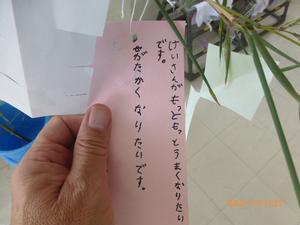 けいさんがもっともっとうまくなりたい
です。
せがたかくなりたいです。